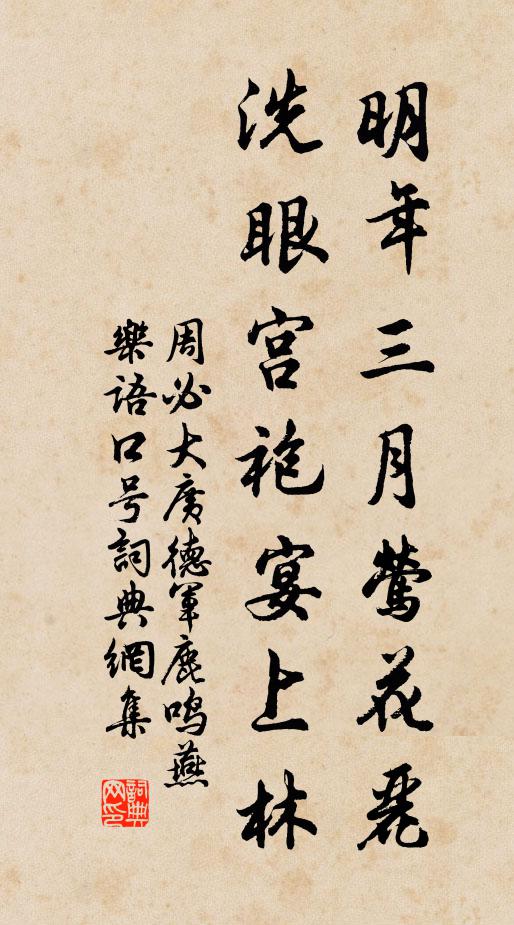 明年三月莺花麗
洗眼宫袍宴上林
周必大广德軍鹿鸣燕
樂語口号詞典網集
詞典网印